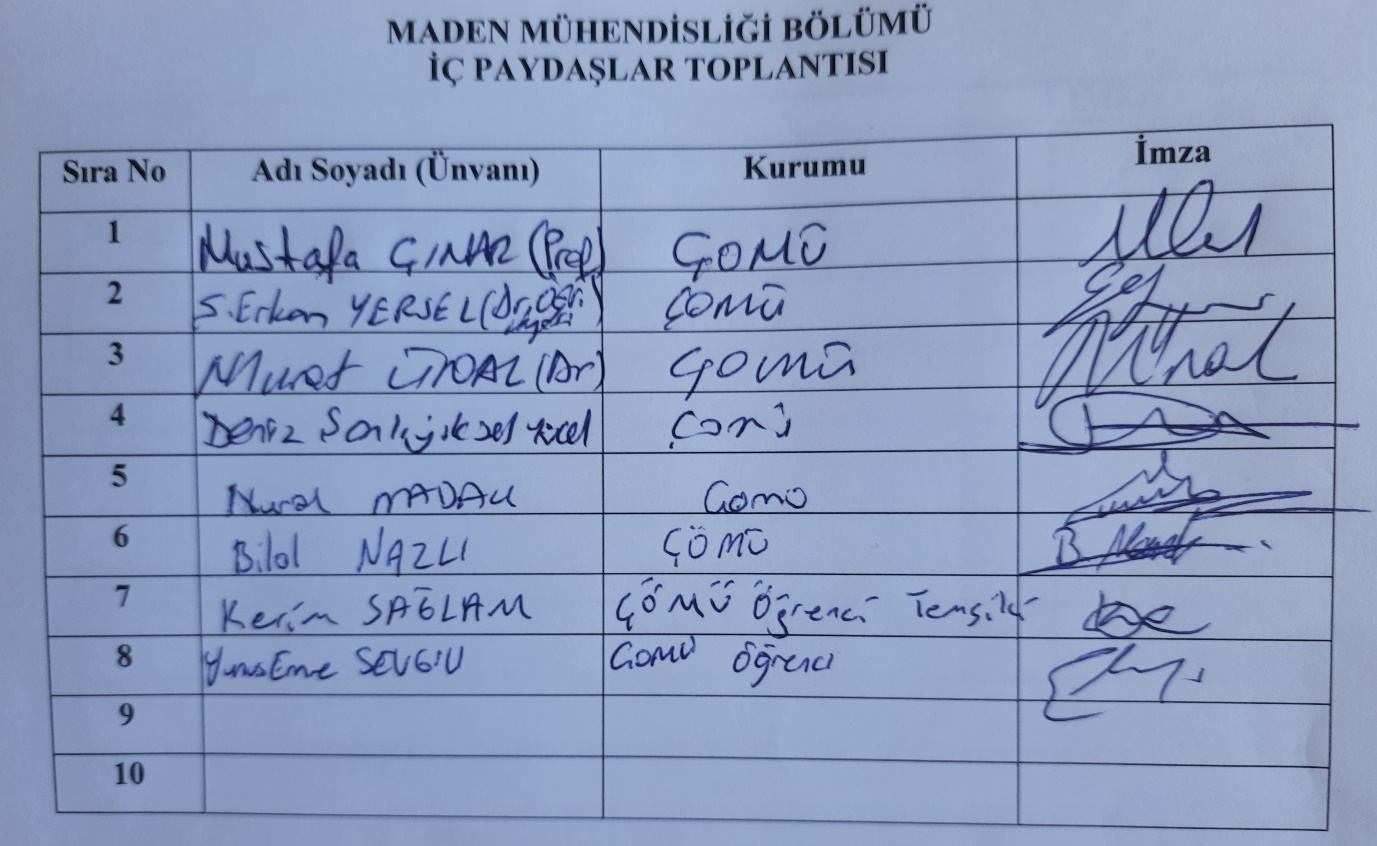 MADEN MÜHENDİSLİĞİ BÖLÜMÜ
İÇ PAYDAŞLAR TOPLANTISI
Sıra No Adı Soyadı (Ünvanı) Kurumu İmza
1 Mustafa ÇINAR (Prof) ÇOMÜ
2 S. Erkan YERSEL (Dr. Öğr. Üyesi) ÇOMÜ
3 Murat ÜNAL (Dr) ÇOMÜ
4 Deniz Şanlıyüksel Yücel ÇOMÜ
5 Nural MADALI ÇOMÜ
6 Bilal NAZLI ÇÖMÜ
7 Kerim SAĞLAM ÇÖMÜ Öğrenci Temsilci
8 Yunus Emre SEVGİLİ ÇOMÜ Öğrenci
9
10